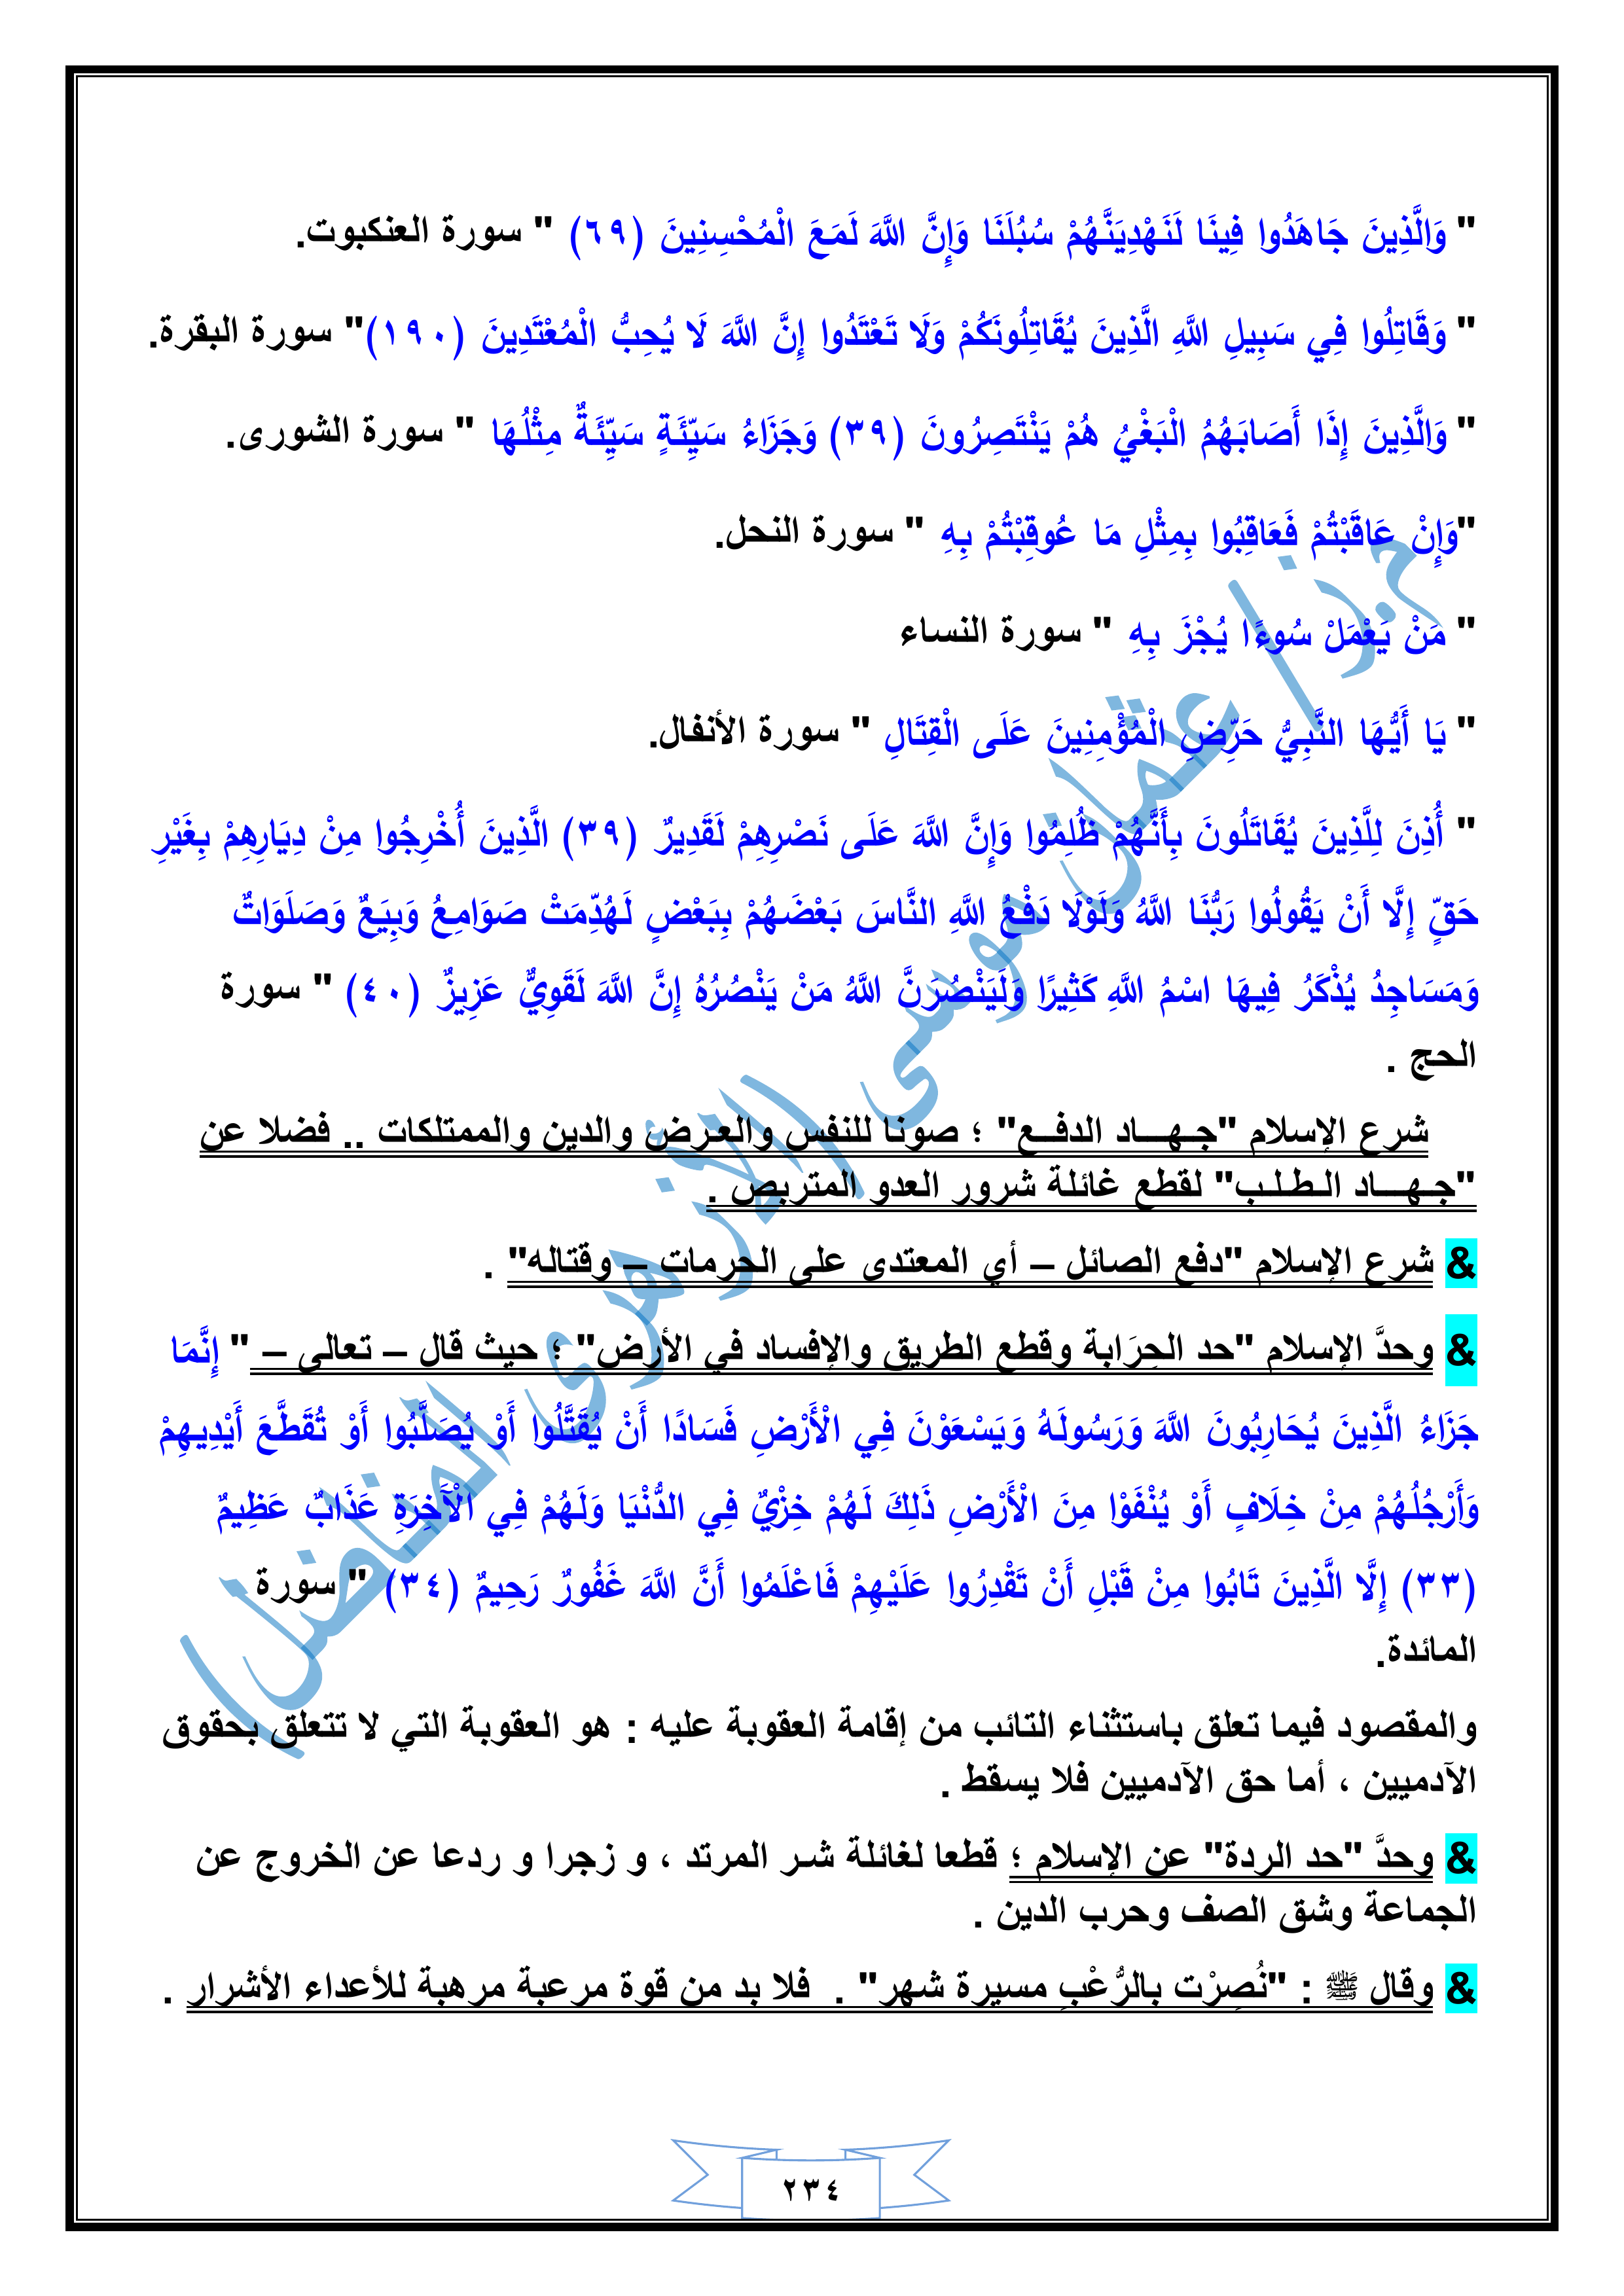 " وَالَّذِينَ جَاهَدُوا فِينَا لَنَهْدِيَنَّهُمْ سُبُلَنَا وَإِنَّ اللَّهَ لَمَعَ الْمُحْسِنِينَ (٦٩) " سورة العنكبوت.
" وَقَاتِلُوا فِي سَبِيلِ اللَّهِ الَّذِينَ يُقَاتِلُونَكُمْ وَلَا تَعْتَدُوا إِنَّ اللَّهَ لَا يُحِبُّ الْمُعْتَدِينَ (١٩٠)" سورة البقرة.
" وَالَّذِينَ إِذَا أَصَابَهُمُ الْبَغْيُ هُمْ يَنْتَصِرُونَ (٣٩) وَجَزَاءُ سَيِّئَةٍ سَيِّئَةٌ مِثْلُهَا " سورة الشورى.
"وَإِنْ عَاقَبْتُمْ فَعَاقِبُوا بِمِثْلِ مَا عُوقِبْتُمْ بِهِ " سورة النحل.
" مَنْ يَعْمَلْ سُوءًا يُجْزَ بِهِ " سورة النساء
" يَا أَيُّهَا النَّبِيُّ حَرِّضِ الْمُؤْمِنِينَ عَلَى الْقِتَالِ " سورة الأنفال.
" أُذِنَ لِلَّذِينَ يُقَاتَلُونَ بِأَنَّهُمْ ظُلِمُوا وَإِنَّ اللَّهَ عَلَى نَصْرِهِمْ لَقَدِيرٌ (٣٩) الَّذِينَ أُخْرِجُوا مِنْ دِيَارِهِمْ بِغَيْرِ
حَقٍّ إِلَّا أَنْ يَقُولُوا رَبُّنَا اللَّهُ وَلَوْلَا دَفْعُ اللَّهِ النَّاسَ بَعْضَهُمْ بِبَعْضٍ لَهُدِّمَتْ صَوَامِعُ وَبِيَعٌ وَصَلَوَاتٌ
وَمَسَاجِدُ يُذْكَرُ فِيهَا اسْمُ اللَّهِ كَثِيرًا وَلَيَنْصُرَنَّ اللَّهُ مَنْ يَنْصُرُهُ إِنَّ اللَّهَ لَقَوِيٌّ عَزِيزٌ (٤٠) " سورة
الحج .
شرع الإسلام "جـهـــاد الدفــع" ؛ صونا للنفس والعرض والدين والممتلكات .. فضلا عن
"جـهـــاد الـطـلـب" لقطع غائلة شرور العدو المتربص .
& شرع الإسلام "دفع الصائل – أي المعتدى على الحرمات – وقتاله" .
& وحدَّ الإسلام "حد الحِرَابة وقطع الطريق والإفساد في الأرض" ؛ حيث قال – تعالى – " إِنَّمَا
جَزَاءُ الَّذِينَ يُحَارِبُونَ اللَّهَ وَرَسُولَهُ وَيَسْعَوْنَ فِي الْأَرْضِ فَسَادًا أَنْ يُقَتَّلُوا أَوْ يُصَلَّبُوا أَوْ تُقَطَّعَ أَيْدِيهِمْ
وَأَرْجُلُهُمْ مِنْ خِلَافٍ أَوْ يُنْفَوْا مِنَ الْأَرْضِ ذَلِكَ لَهُمْ خِزْيٌ فِي الدُّنْيَا وَلَهُمْ فِي الْآخِرَةِ عَذَابٌ عَظِيمٌ
(٣٣) إِلَّا الَّذِينَ تَابُوا مِنْ قَبْلِ أَنْ تَقْدِرُوا عَلَيْهِمْ فَاعْلَمُوا أَنَّ اللَّهَ غَفُورٌ رَحِيمٌ (٣٤) " سورة
المائدة.
والمقصود فيما تعلق باستثناء التائب من إقامة العقوبة عليه : هو العقوبة التي لا تتعلق بحقوق
الآدميين ، أما حق الآدميين فلا يسقط .
& وحدَّ "حد الردة" عن الإسلام ؛ قطعا لغائلة شـر المرتد ، و زجرا و ردعا عن الخروج عن
الجماعة وشق الصف وحرب الدين .
& وقال ﷺ : "نُصِرْت بالرُّعْبِ مسيرة شهر" . فلا بد من قوة مرعبة مرهبة للأعداء الأشرار .
م.ز/ عثمان موسى (الأزهرى المناضل)
٢٣٤